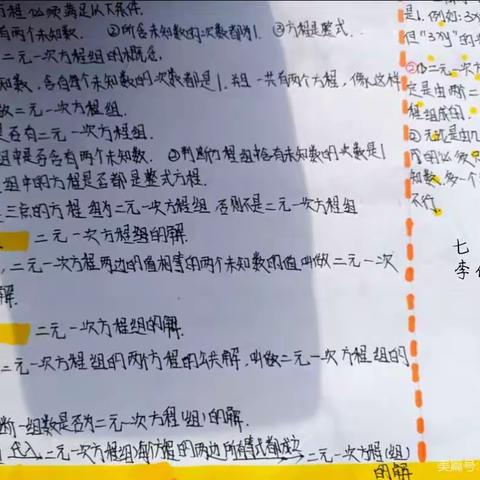 方程必须满足以下条件.
有两个未知数. ②所含未知数的次数都为1. ③方程是整式.
二元一次方程组的概念.
知数,含有每个未知数的次数都是1,并且一共有两个方程,像这样
做二元一次方程组.
是否有二元一次方程组.
组中是否含有两个未知数. ②判断方程组中含有未知数的次数是1
组中的方程是否都是整式方程.
三点的方程组为二元一次方程组 否则不是二元一次方程组
二元一次方程组的解.
,二元一次方程两边的值相等的两个未知数的值叫做二元一次
解.
二元一次方程组的解.
二元一次方程组的两个方程的公共解,叫做二元一次方程组的
断一组数是否为二元一次方程(组)的解.
代入 二元一次方程(组)每个方程的两边 所有等式都成立 二元一次方程(组)
的解
是1.例如:3xy
但"3xy"的
②①二元一次方
定是由两个二
程组成的.
②无论是由几
知数,多一个
不行.
七
李
美篇号: